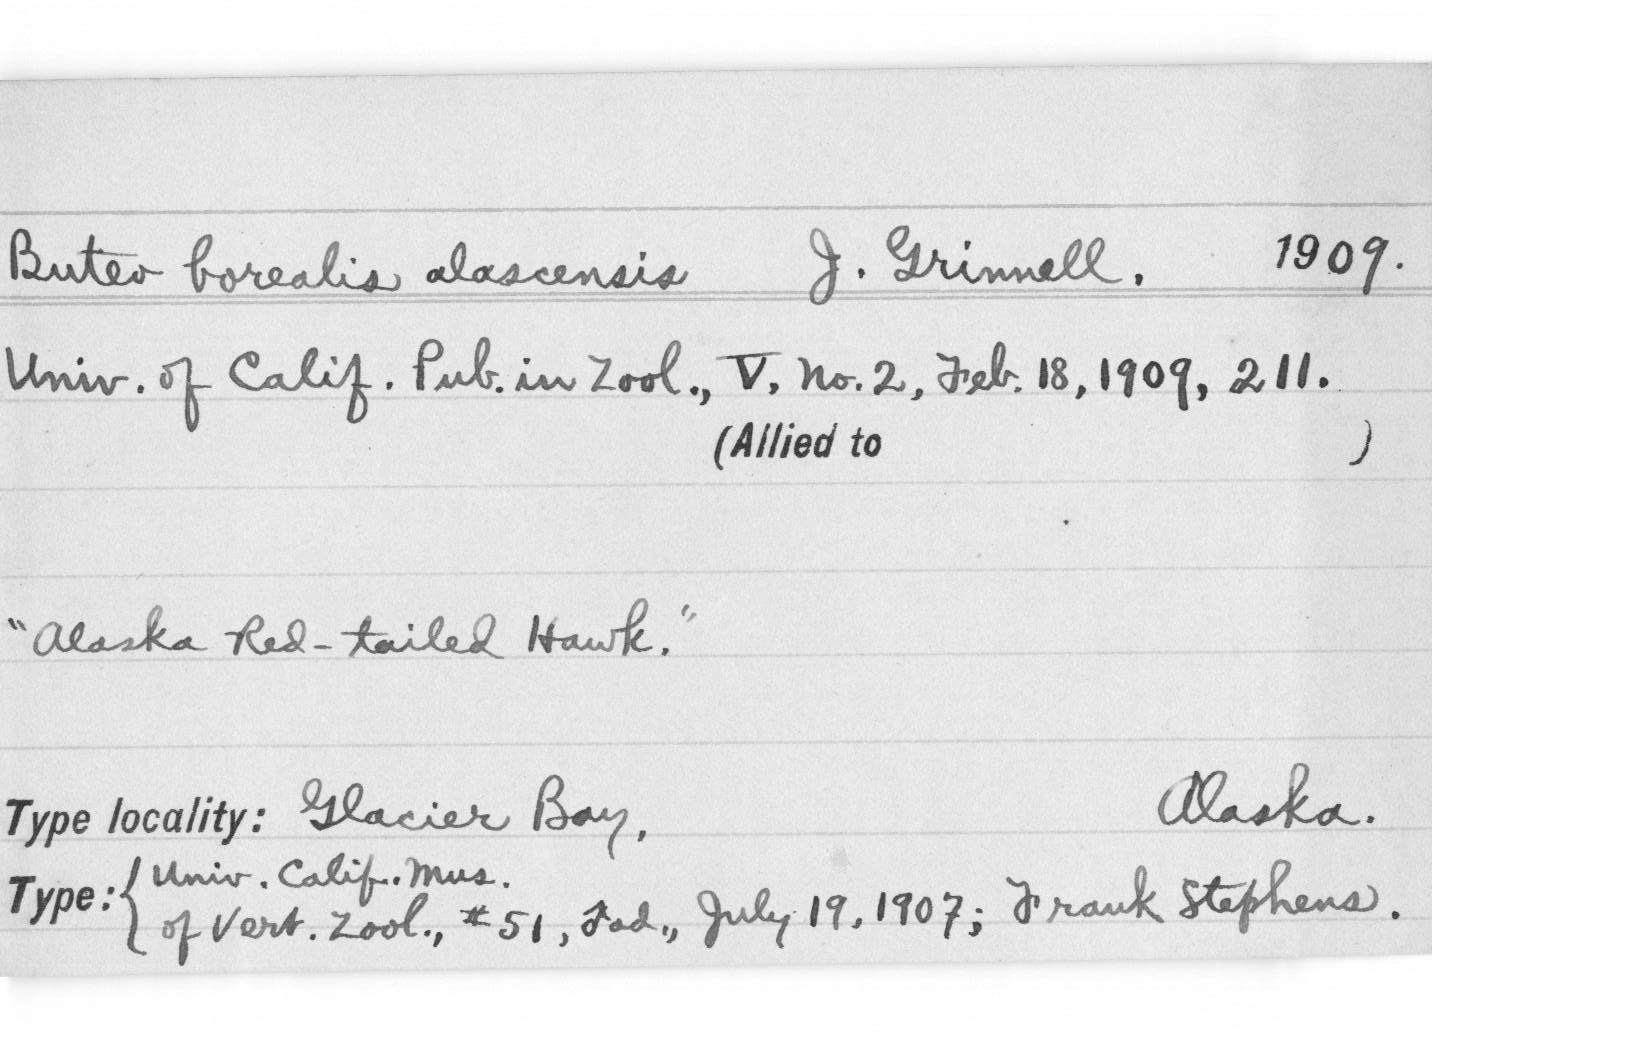 Buteo borealis alascensis J. Grinnell. 1909.
Univ. of Calif. Pub. in Zool., V, No. 2, Feb. 18, 1909, 211.
(Allied to )
"Alaska Red-tailed Hawk."
Type locality: Glacier Bay, Alaska.
Type: { Univ. Calif. Mus.
of Vert. Zool., #51, ad., July 19, 1907; Frank Stephens.